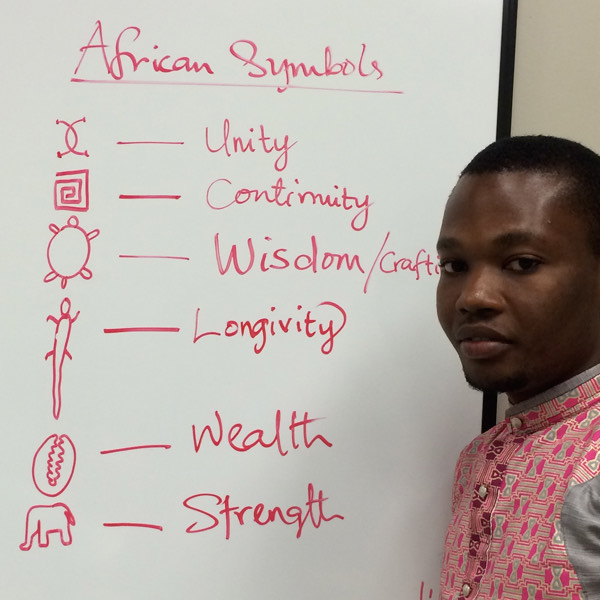 African Symbols
Unity
Continuity
Wisdom/Crafti
Longivity
Wealth
Strength